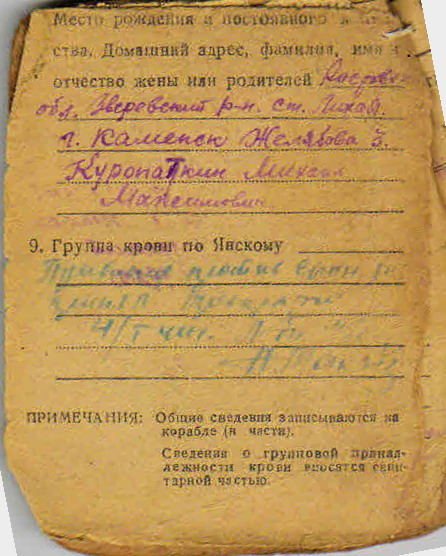 Место рождения и постоянного
ства. Домашний адрес, фамилия, имя и
отчество жены или родителей Ростовск
обл. Зверевский р-н. ст. Лихая.
г. Каменск Желябова 3.
Куропаткин Михаил
Максимович
9. Группа крови по Янскому
Прививка против
4/I
ПРИМЕЧАНИЯ: Общие сведения записываются на
корабле (в части).
Сведения о групповой принад-
лежности крови вносятся сани-
тарной частью.